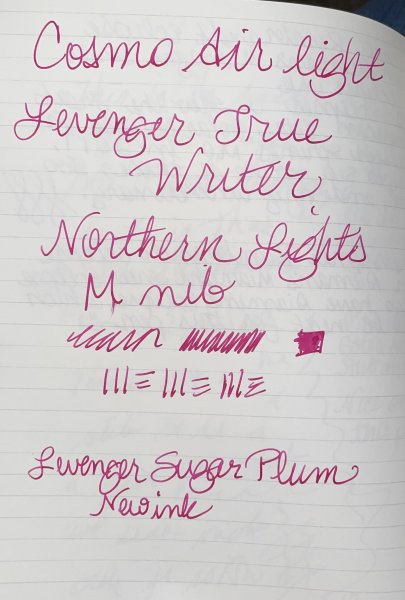 Cosmo Air light
Levenger True
Writer
Northern Lights
M nib
Levenger Sugar Plum
New ink